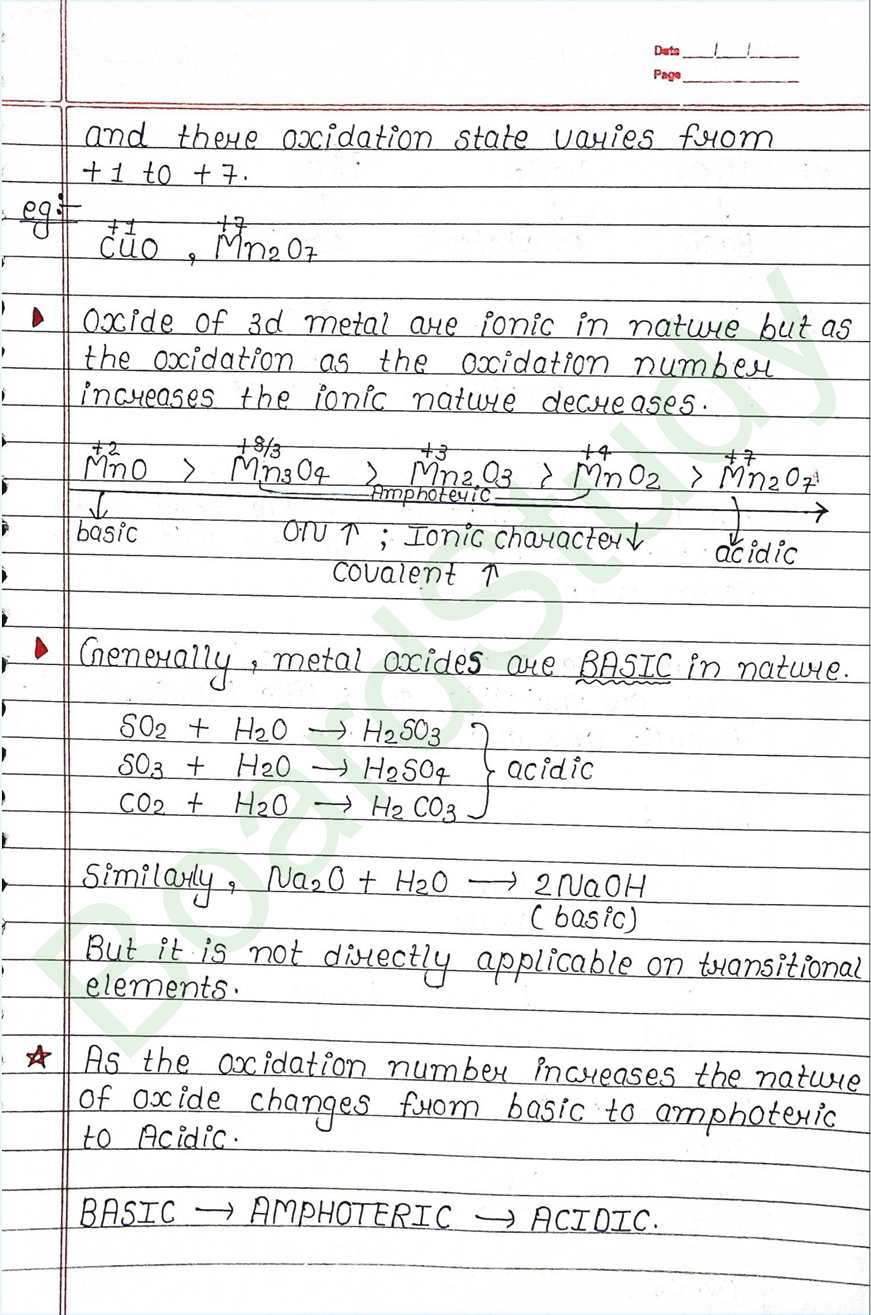 Date ___/___/___
Page ___________
and there oxidation state varies from
+1 to +7.
eg:-
+1 +7
CuO , Mn2O7
Oxide of 3d metal are ionic in nature but as
the oxidation as the oxidation number
increases the ionic nature decreases.
+2 +8/3 +3 +4 +7
MnO > Mn3O4 > Mn2O3 > MnO2 > Mn2O7
Amphoteric
basic ON ↑ ; Ionic character↓ acidic
covalent ↑
Generally, metal oxides are BASIC in nature.
SO2 + H2O → H2SO3
SO3 + H2O → H2SO4 } acidic
CO2 + H2O → H2CO3
Similarly, Na2O + H2O → 2NaOH
(basic)
But it is not directly applicable on transitional
elements.
☆ As the oxidation number increases the nature
of oxide changes from basic to amphoteric
to Acidic.
BASIC → AMPHOTERIC → ACIDIC.
BoardStudy